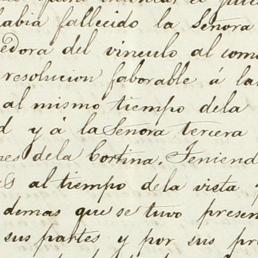 había fallecido la Señora
edora del vinculo al com
resolucion faborable á la
al mismo tiempo dela
d y á la Señora tercera
res dela Cortina. Teniend
es al tiempo dela vista
demas que se tuvo presen
sus partes y por sus pr